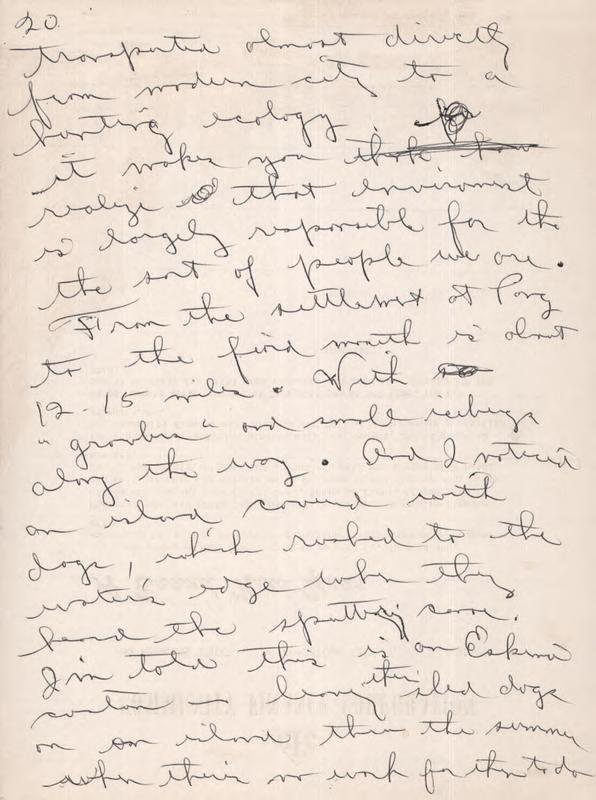 20.
transported almost directly
from modern city to a
hunting ecology
it makes you think how
realize that enviroment
is largely responsible for the
the sort of people we are.
From the settlement at Pang
to the fiord mouth is about
12 - 15 miles. With
"growlers" and small icebergs
along the way. And I noticed
an island covered with
dogs, which rushed to the
waters edge when they
heard the sputtering
I'm told this is an Eskimo
custom leaving their sled dogs
on an island thru the summer
when there's no work for them to do